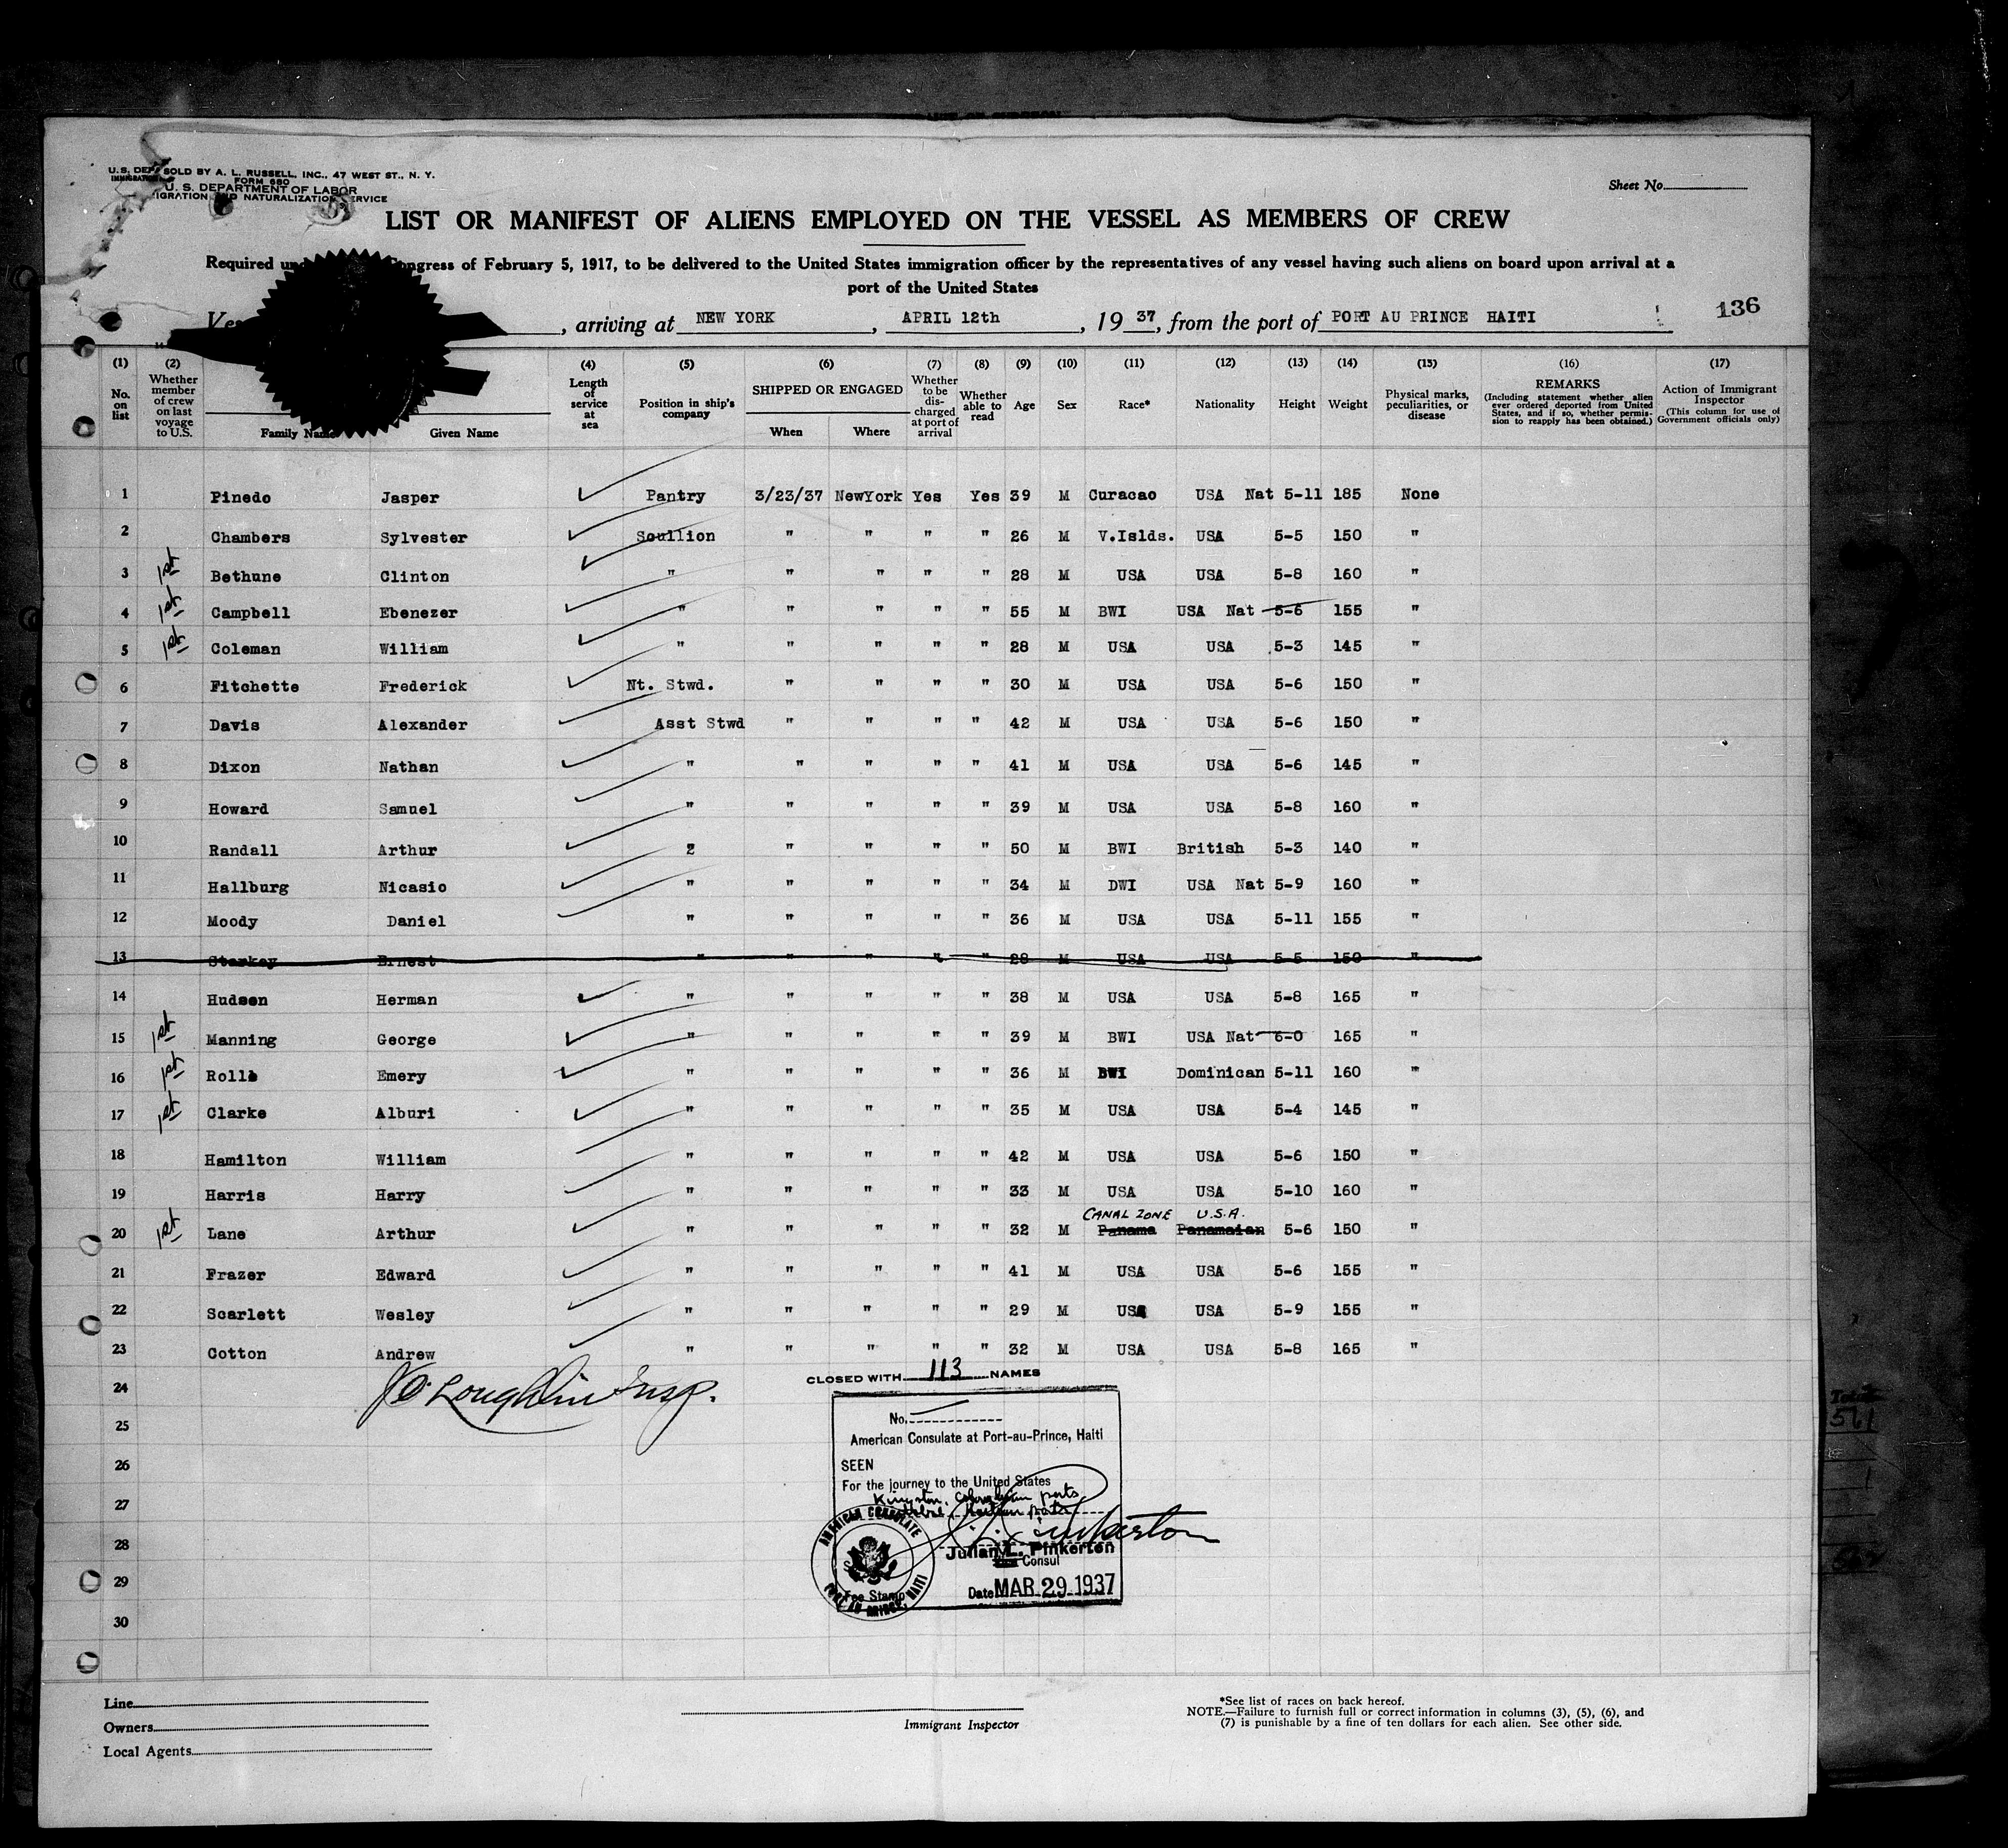 SOLD BY A. L. RUSSELL, INC., 47 WEST ST., N. Y.
FORM 680
U. S. DEPARTMENT OF LABOR
NATURALIZATION SERVICE
Sheet No.
LIST OR MANIFEST OF ALIENS EMPLOYED ON THE VESSEL AS MEMBERS OF CREW
Required Congress of February 5, 1917, to be delivered to the United States immigration officer by the representatives of any vessel having such aliens on board upon arrival at a
port of the United States
, arriving at NEW YORK , APRIL 12th , 19 37, from the port of PORT AU PRINCE HAITI 136
(1) No. on list
(2) Whether member of crew on last voyage to U.S.
Family Name Given Name
(4) Length of service at sea
(5) Position in ship's company
(6) SHIPPED OR ENGAGED When Where
(7) Whether to be discharged at port of arrival
(8) Whether able to read
(9) Age
(10) Sex
(11) Race*
(12) Nationality
(13) Height
(14) Weight
(15) Physical marks, peculiarities, or disease
(16) REMARKS (Including statement whether alien ever ordered deported from United States, and if so, whether permission to reapply has been obtained.)
(17) Action of Immigrant Inspector (This column for use of Government officials only)
1 Pinedo Jasper Pantry 3/23/37 NewYork Yes Yes 39 M Curacao USA Nat 5-11 185 None
2 Chambers Sylvester Scullion " " " " 26 M V.Islds. USA 5-5 150 "
3 1st Bethune Clinton " " " " " 28 M USA USA 5-8 160 "
4 1st Campbell Ebenezer " " " " " 55 M BWI USA Nat 5-6 155 "
5 1st Coleman William " " " " " 28 M USA USA 5-3 145 "
6 Fitchette Frederick Nt. Stwd. " " " " 30 M USA USA 5-6 150 "
7 Davis Alexander Asst Stwd " " " " 42 M USA USA 5-6 150 "
8 Dixon Nathan " " " " " 41 M USA USA 5-6 145 "
9 Howard Samuel " " " " " 39 M USA USA 5-8 160 "
10 Randall Arthur 2 " " " " 50 M BWI British 5-3 140 "
11 Hallburg Nicasio " " " " " 34 M DWI USA Nat 5-9 160 "
12 Moody Daniel " " " " " 36 M USA USA 5-11 155 "
13 Starkey Ernest " " " " " 28 M USA USA 5-5 150 "
14 Hudson Herman " " " " " 38 M USA USA 5-8 165 "
15 1st Manning George " " " " " 39 M BWI USA Nat 6-0 165 "
16 1st Rolle Emery " " " " " 36 M BWI Dominican 5-11 160 "
17 1st Clarke Alburi " " " " " 35 M USA USA 5-4 145 "
18 Hamilton William " " " " " 42 M USA USA 5-6 150 "
19 Harris Harry " " " " " 33 M USA USA 5-10 160 "
CANAL ZONE U.S.A.
20 1st Lane Arthur " " " " " 32 M Panama Panamaian 5-6 150 "
21 Frazer Edward " " " " " 41 M USA USA 5-6 155 "
22 Scarlett Wesley " " " " " 29 M USA USA 5-9 155 "
23 Cotton Andrew " " " " " 32 M USA USA 5-8 165 "
24 J O'Loughlin Insp. CLOSED WITH 113 NAMES
25
26
27
28
29
30
No.
American Consulate at Port-au-Prince, Haiti
SEEN
For the journey to the United States
Kingston, Colombian ports
Haitian ports
Julian L. Pinkerton
Consul
Date MAR 29 1937
AMERICAN CONSULATE
Fee Stamp
PORT AU PRINCE, HAITI
Line
Owners
Local Agents
Immigrant Inspector
*See list of races on back hereof.
NOTE.—Failure to furnish full or correct information in columns (3), (5), (6), and
(7) is punishable by a fine of ten dollars for each alien. See other side.